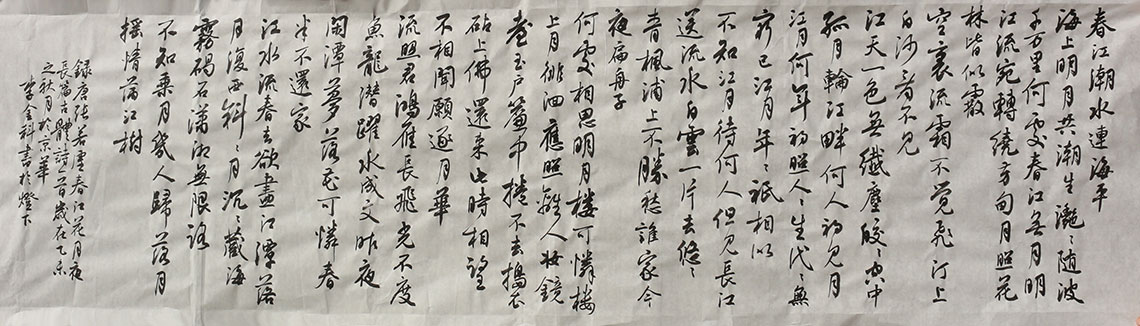 春江潮水連海平
海上明月共潮生灩〻随波
千万里何處春江无月明
江流宛轉繞芳甸月照花
林皆似霰
空裏流霜不覺飛汀上
白沙看不見
江天一色無纖塵皎〻空中
孤月輪江畔何人初見月
江月何年初照人〻生代〻無
窮已江月年〻衹相似
不知江月待何人但見長江
送流水白雲一片去悠〻
青楓浦上不勝愁誰家今
夜扁舟子
何處相思明月樓可憐樓
上月徘徊應照離人妝鏡
臺玉戶簾中捲不去搗衣
砧上拂還来此時相望
不相聞願逐月華
流照君鴻雁長飛光不度
魚龍潜躍水成文昨夜
閑潭夢落花可憐春
半不還家
江水流春去欲盡江潭落
月復西斜〻月沉〻藏海
霧碣石瀟湘無限路
不知乘月幾人歸落月
摇情满江樹
錄唐張若虛春江花月夜
長篇古體詩一首歲在乙未
之秋月於京華
李金科書於燈下